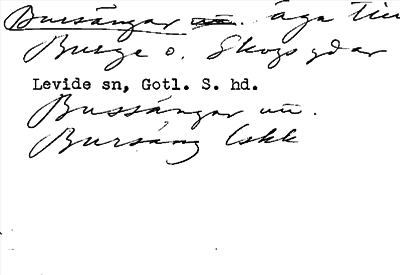 Bursängar äga till
Burge o. Skogs gdar
Levide sn, Gotl. S. hd.
Bussängar un.
Bursäng Eskk